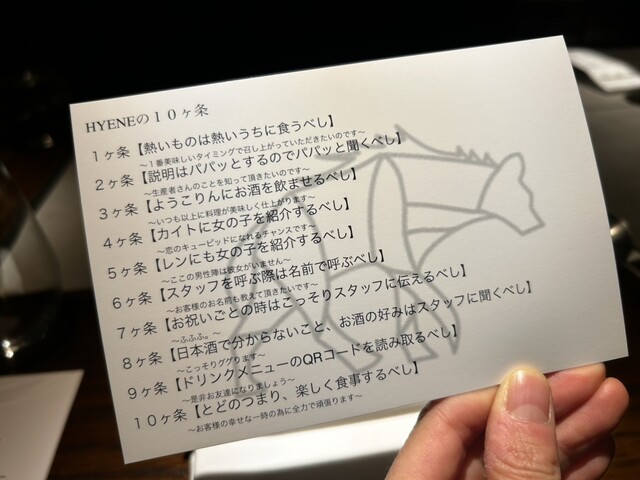 HYENEの10ヶ条
1ヶ条【熱いものは熱いうちに食うべし】
~1番美味しいタイミングで召し上がっていただきたいのです~
2ヶ条【説明はパパッとするのでパパッと聞くべし】
~生産者さんのことを知って頂きたいのです~
3ヶ条【ようこりんにお酒を飲ませるべし】
~いつも以上に料理が美味しく仕上がります~
4ヶ条【カイトに女の子を紹介するべし】
~恋のキューピッドになれるチャンスです~
5ヶ条【レンにも女の子を紹介するべし】
~ここの男性陣は彼女がいません~
6ヶ条【スタッフを呼ぶ際は名前で呼ぶべし】
~お客様のお名前も教えて頂きたいです~
7ヶ条【お祝いごとの時はこっそりスタッフに伝えるべし】
~ふふふ。~
8ヶ条【日本酒で分からないこと、お酒の好みはスタッフに聞くべし】
~こっそりググります~
9ヶ条【ドリンクメニューのQRコードを読み取るべし】
~是非お友達になりましょう~
10ヶ条【とどのつまり、楽しく食事するべし】
~お客様の幸せな一時の為に全力で頑張ります~